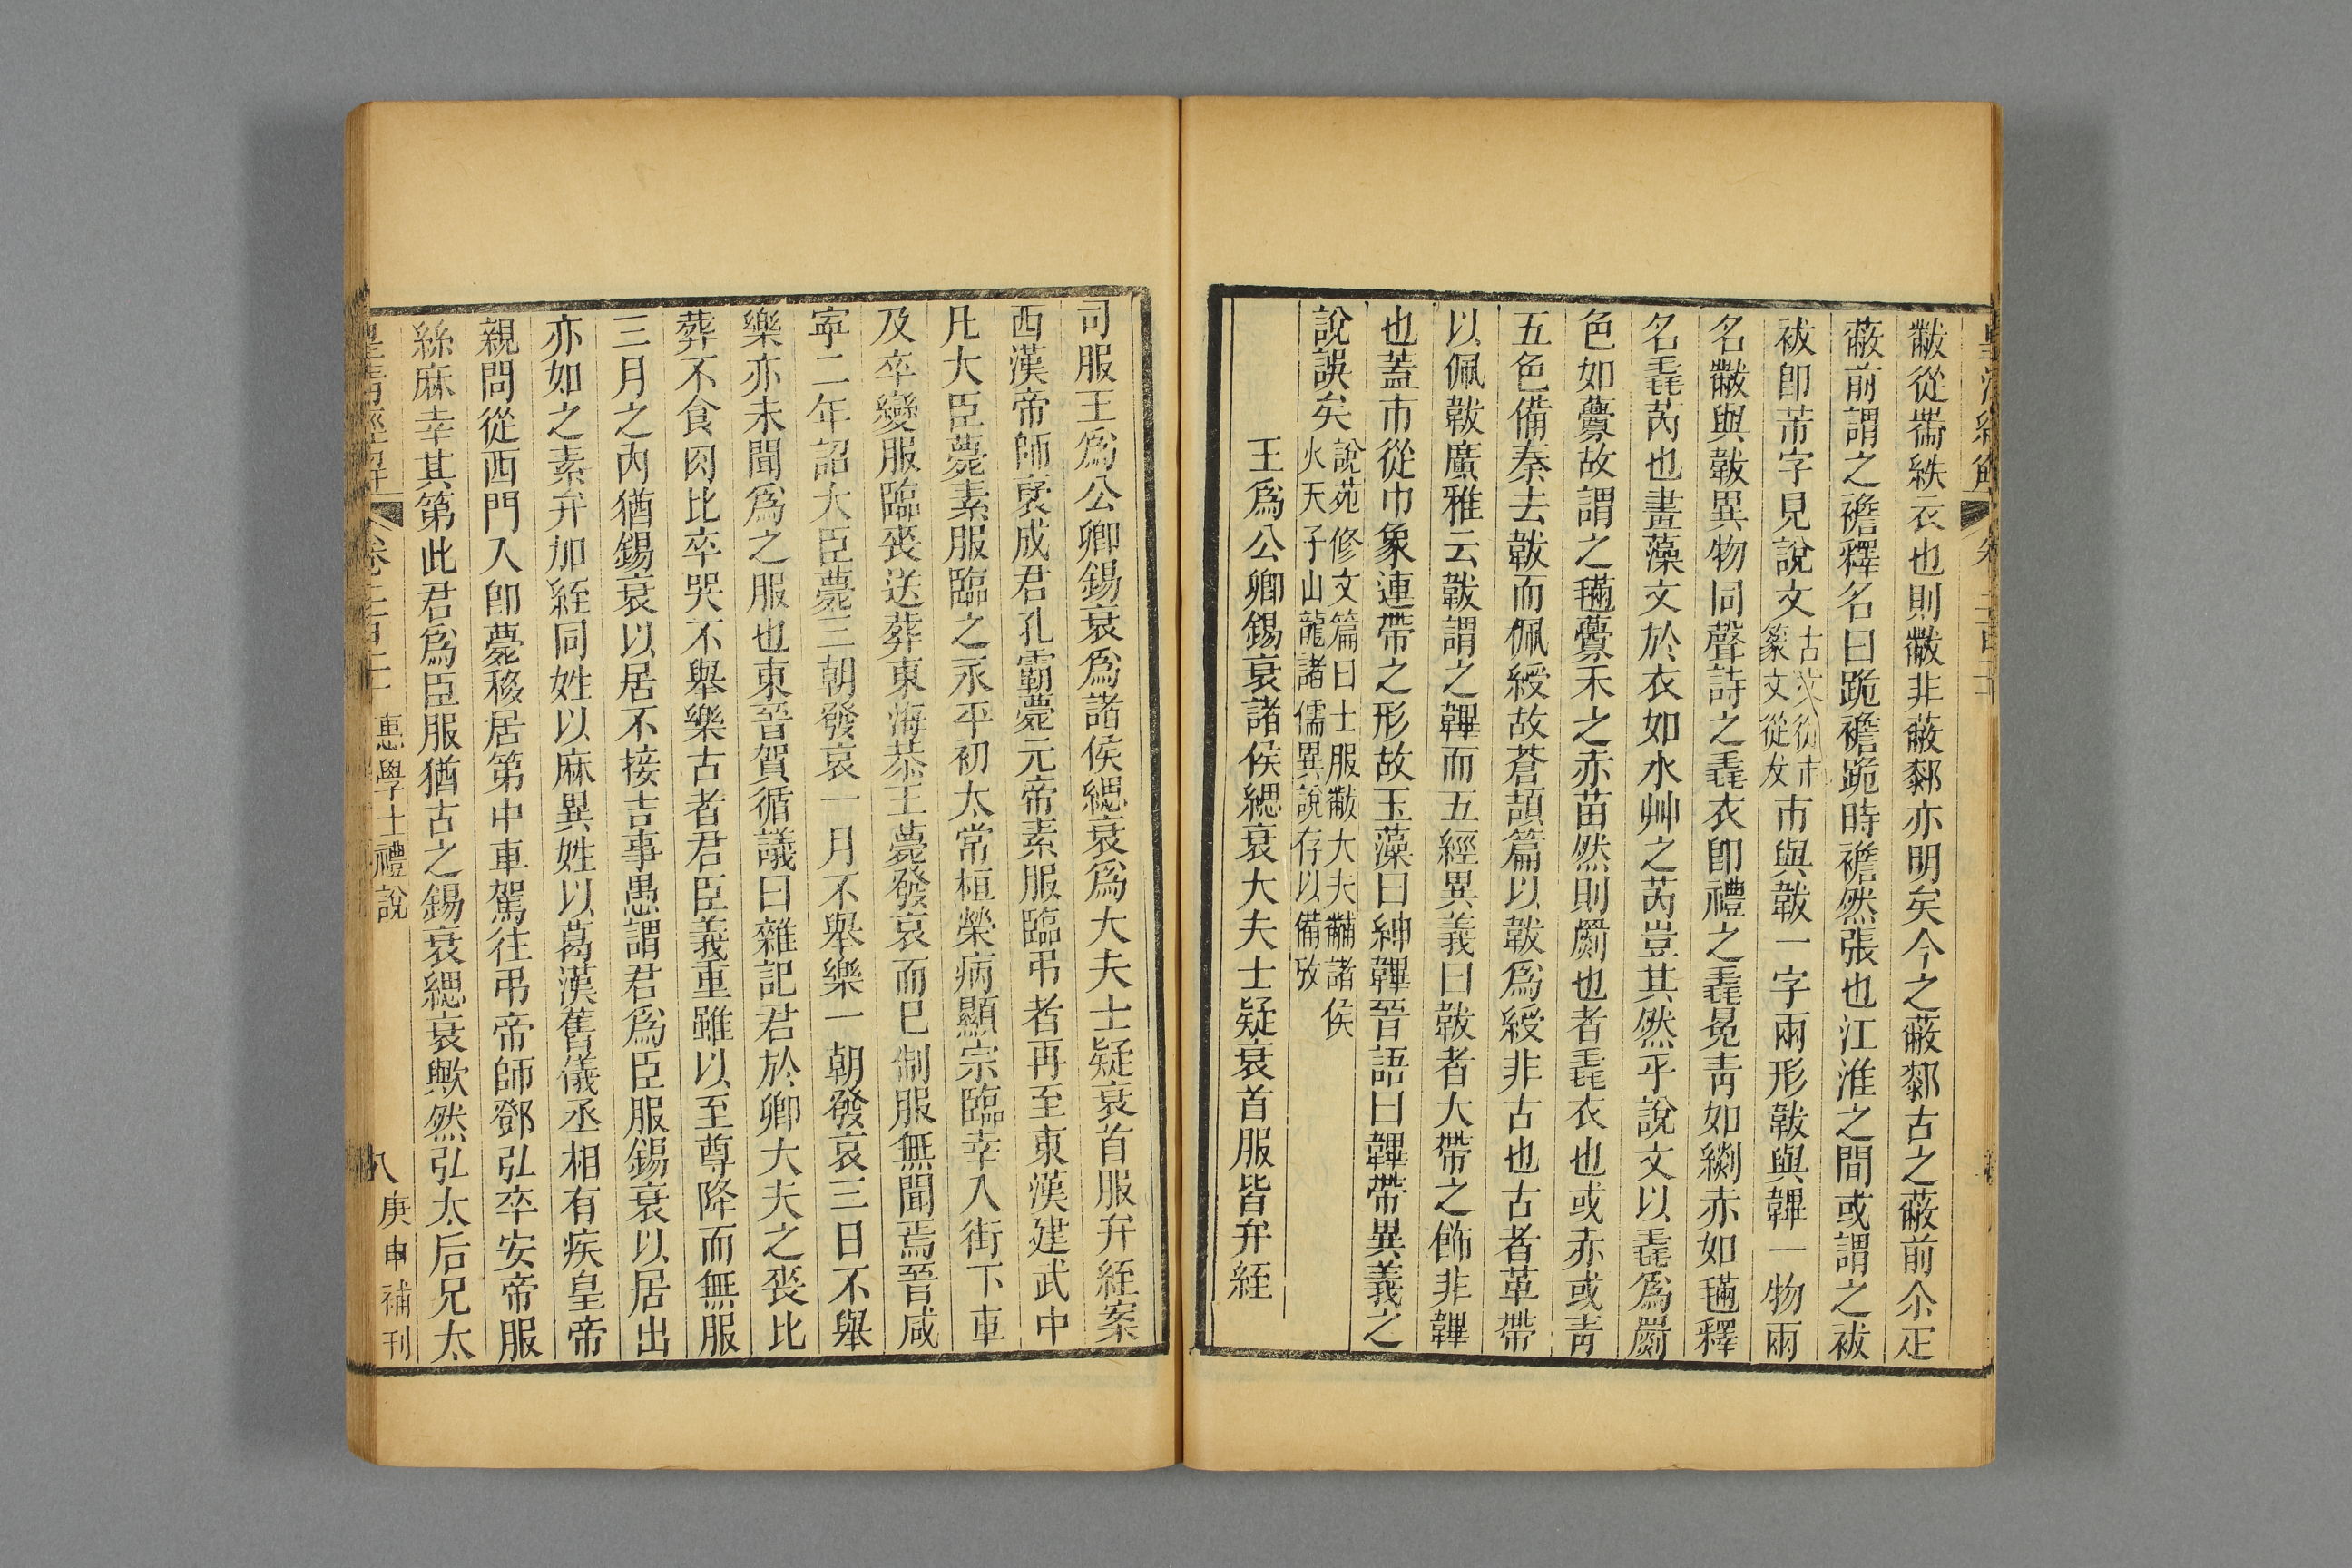 黻從黹紩衣也則黻非蔽䣛亦明矣今之蔽䣛古之蔽前尒疋
蔽前謂之襜釋名曰跪襜跪時襜然張也江淮之間或謂之祓
祓卽芾字見說文
古文從巿
篆文從犮
巿與韍一字兩形韍與韠一物兩
名黻與韍異物同聲詩之毳衣卽禮之毳冕靑如緅赤如𣯩釋
名毳芮也畫藻文於衣如水艸之芮豈其然乎說文以毳爲罽
色如虋故謂之𣯩虋禾之赤苗然則罽也者毳衣也或赤或靑
五色備秦去韍而佩綬故蒼頡篇以韍爲綬非古也古者革帶
以佩韍廣雅云韍謂之韠而五經異義曰韍者大帶之飾非韠
也蓋巿從巾象連帶之形故玉藻曰紳韠晉語曰韠帶異義之
說誤矣
說苑修文篇曰士服黻大夫黼諸侯
火天子山龍諸儒異說存以備攷
王爲公卿錫衰諸侯緦衰大夫士疑衰首服皆弁絰
司服王爲公卿錫衰爲諸侯緦衰爲大夫士疑衰首服弁絰案
西漢帝師襃成君孔霸薨元帝素服臨弔者再至東漢建武中
凡大臣薨素服臨之永平初太常桓榮病顯宗臨幸入街下車
及卒變服臨喪送葬東海恭王薨發哀而已制服無聞焉晉咸
寧二年詔大臣薨三朝發哀一月不舉樂一朝發哀三日不舉
樂亦未聞爲之服也東晉賀循議曰雜記君於卿大夫之喪比
葬不食肉比卒哭不舉樂古者君臣義重雖以至尊降而無服
三月之內猶錫衰以居不接吉事愚謂君爲臣服錫衰以居出
亦如之素弁加絰同姓以麻異姓以葛漢舊儀丞相有疾皇帝
親問從西門入卽薨移居第中車駕往弔帝師鄧弘卒安帝服
絲麻幸其第此君爲臣服猶古之錫衰緦衰歟然弘太后兄太
皇淸經解
卷二百二十
惠學士禮說
八
庚申補刊